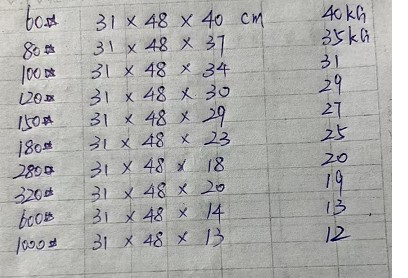 60# 31 × 48 × 40 cm 40kG
80# 31 × 48 × 37 35kG
100# 31 × 48 × 34 31
120# 31 × 48 × 30 29
150# 31 × 48 × 29 27
180# 31 × 48 × 23 25
280# 31 × 48 × 18 20
320# 31 × 48 × 20 19
600# 31 × 48 × 14 13
1000# 31 × 48 × 13 12